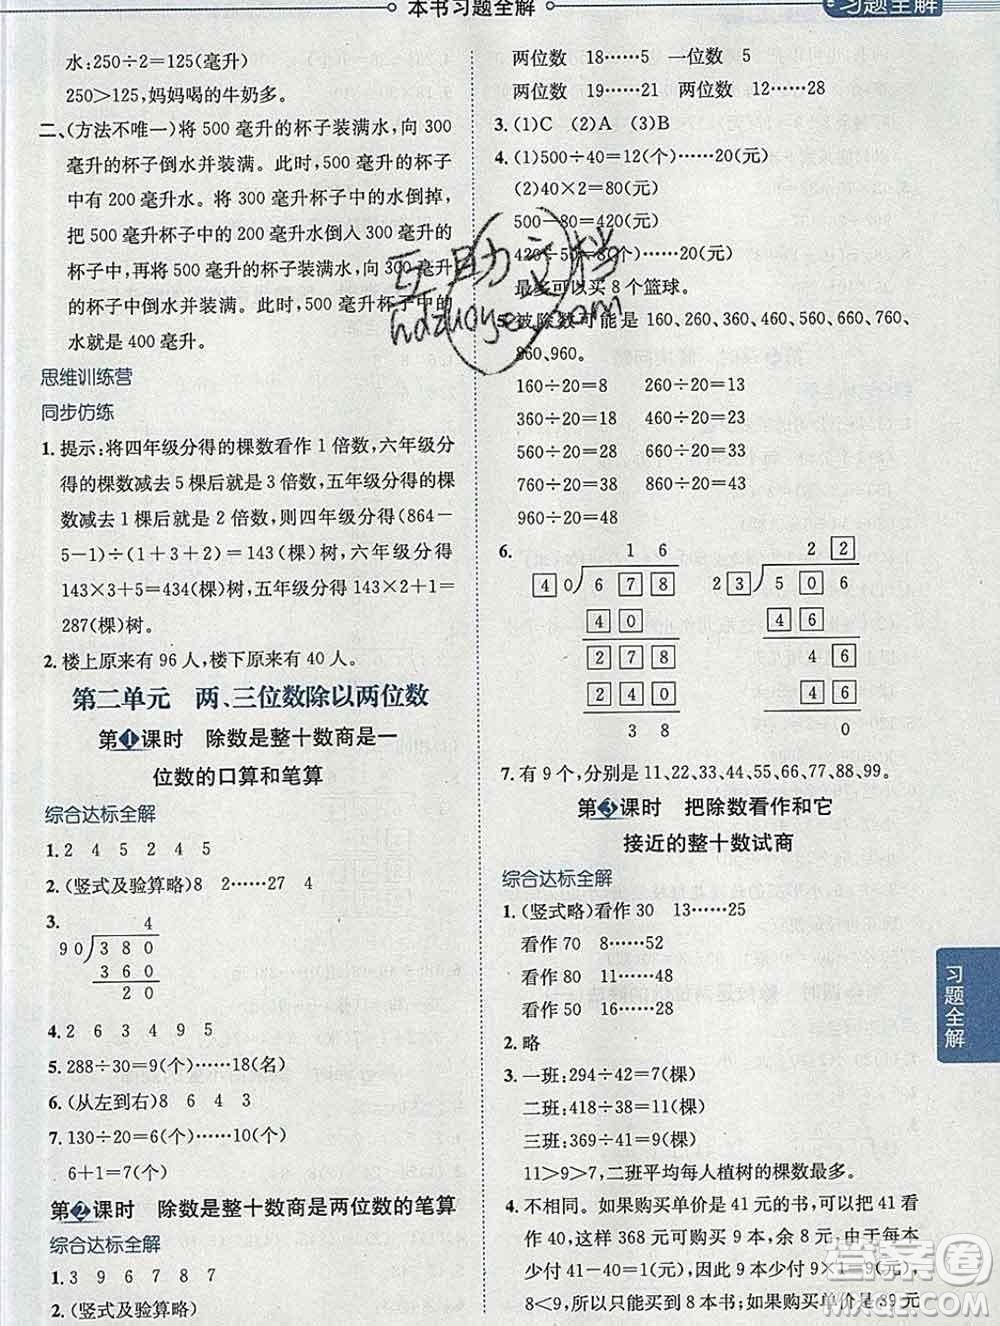 本书习题全解
习题全解
水:250÷2=125(毫升)
250>125,妈妈喝的牛奶多。
二、(方法不唯一)将 500 毫升的杯子装满水,向 300
毫升的杯子倒水并装满。此时,500 毫升的杯子
中有 200 毫升水。将 300 毫升杯子中的水倒掉,
把 500 毫升杯子中的 200 毫升水倒入 300 毫升的
杯子中,再将 500 毫升的杯子装满水,向 300 毫升
的杯子中倒水并装满,此时 500 毫升杯子中的
水就是 400 毫升。
思维训练营
同步仿练
1. 提示:将四年级分得的棵数看作 1 倍数,六年级分
得的棵数减去 5 棵后就是 3 倍数,五年级分得的棵
数减去 1 棵后就是 2 倍数,则四年级分得(864-
5-1)÷(1+3+2)=143(棵)树,六年级分得
143×3+5=434(棵)树,五年级分得 143×2+1=
287(棵)树。
2. 楼上原来有 96 人,楼下原来有 40 人。
第二单元 两、三位数除以两位数
第1课时 除数是整十数商是一
位数的口算和笔算
综合达标全解
1. 2 4 5 2 4 5
2. (竖式及验算略)8 2……27 4
3.
4
90 380
360
20
4. 2 6 3 4 9 5
5. 288÷30=9(个)……18(名)
6. (从左到右)8 6 4 3
7. 130÷20=6(个)……10(个)
6+1=7(个)
第2课时 除数是整十数商是两位数的笔算
综合达标全解
1. 3 9 6 7 8 7
2. (竖式及验算略)
两位数 18……5 一位数 5
两位数 19……21 两位数 12……28
3. (1)C (2)A (3)B
4. (1)500÷40=12(个)……20(元)
(2)40×2=80(元)
500-80=420(元)
420÷50=8(个)……20(元)
最多可以买 8 个篮球。
5. 被除数可能是 160、260、360、460、560、660、760、
860、960。
160÷20=8 260÷20=13
360÷20=18 460÷20=23
560÷20=28 660÷20=33
760÷20=38 860÷20=43
960÷20=48
6.
1 6 2 2
4 0 6 7 8 2 3 5 0 6
4 0 4 6
2 7 8 4 6
2 4 0 4 6
3 8 0
7. 有 9 个,分别是 11、22、33、44、55、66、77、88、99。
第3课时 把除数看作和它
接近的整十数试商
综合达标全解
1. (竖式略)看作 30 13……25
看作 70 8……52
看作 80 11……48
看作 50 16……28
2. 略
3. 一班:294÷42=7(棵)
二班:418÷38=11(棵)
三班:369÷41=9(棵)
11>9>7,二班平均每人植树的棵数最多。
4. 不相同。如果购买单价是 41 元的书,可以把 41 看
作 40,这样 368 元可以买 9 本,余 8 元,由于每本
少付 41-40=1(元),因此买 9 本少付 9×1=9(元),
8<9,所以只能买到 8 本书;如果购买单价是 39 元
习题全解
互助文档
hdzuoye.com
答案圈